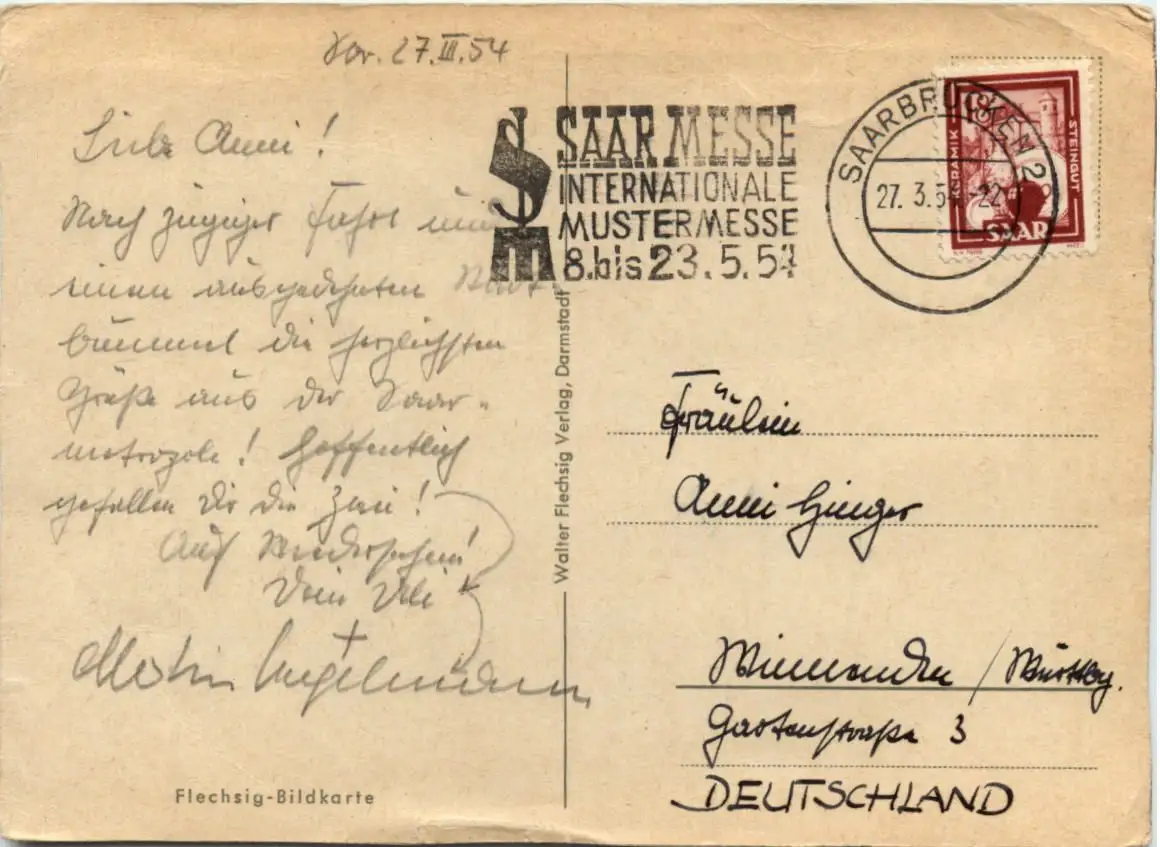 27.III.54
Liebe Anni!
Nach zügiger Fahrt und
einem ausgedehnten Stadt-
bummel die herzlichsten
Grüße aus der Saar-
metropole! Hoffentlich
gefallen Dir die
Auf Wiedersehen!
Dein
Martin Engelmann
SAAR MESSE
INTERNATIONALE
MUSTERMESSE
8. bis 23.5.54
SAARBRÜCKEN 2
27. 3. 54 -22
KERAMIK
STEINGUT
SAAR
Walter Flechsig Verlag, Darmstadt
Fräulein
Anni Ginger
Winnenden / Württbg.
Gartenstraße 3
DEUTSCHLAND
Flechsig-Bildkarte